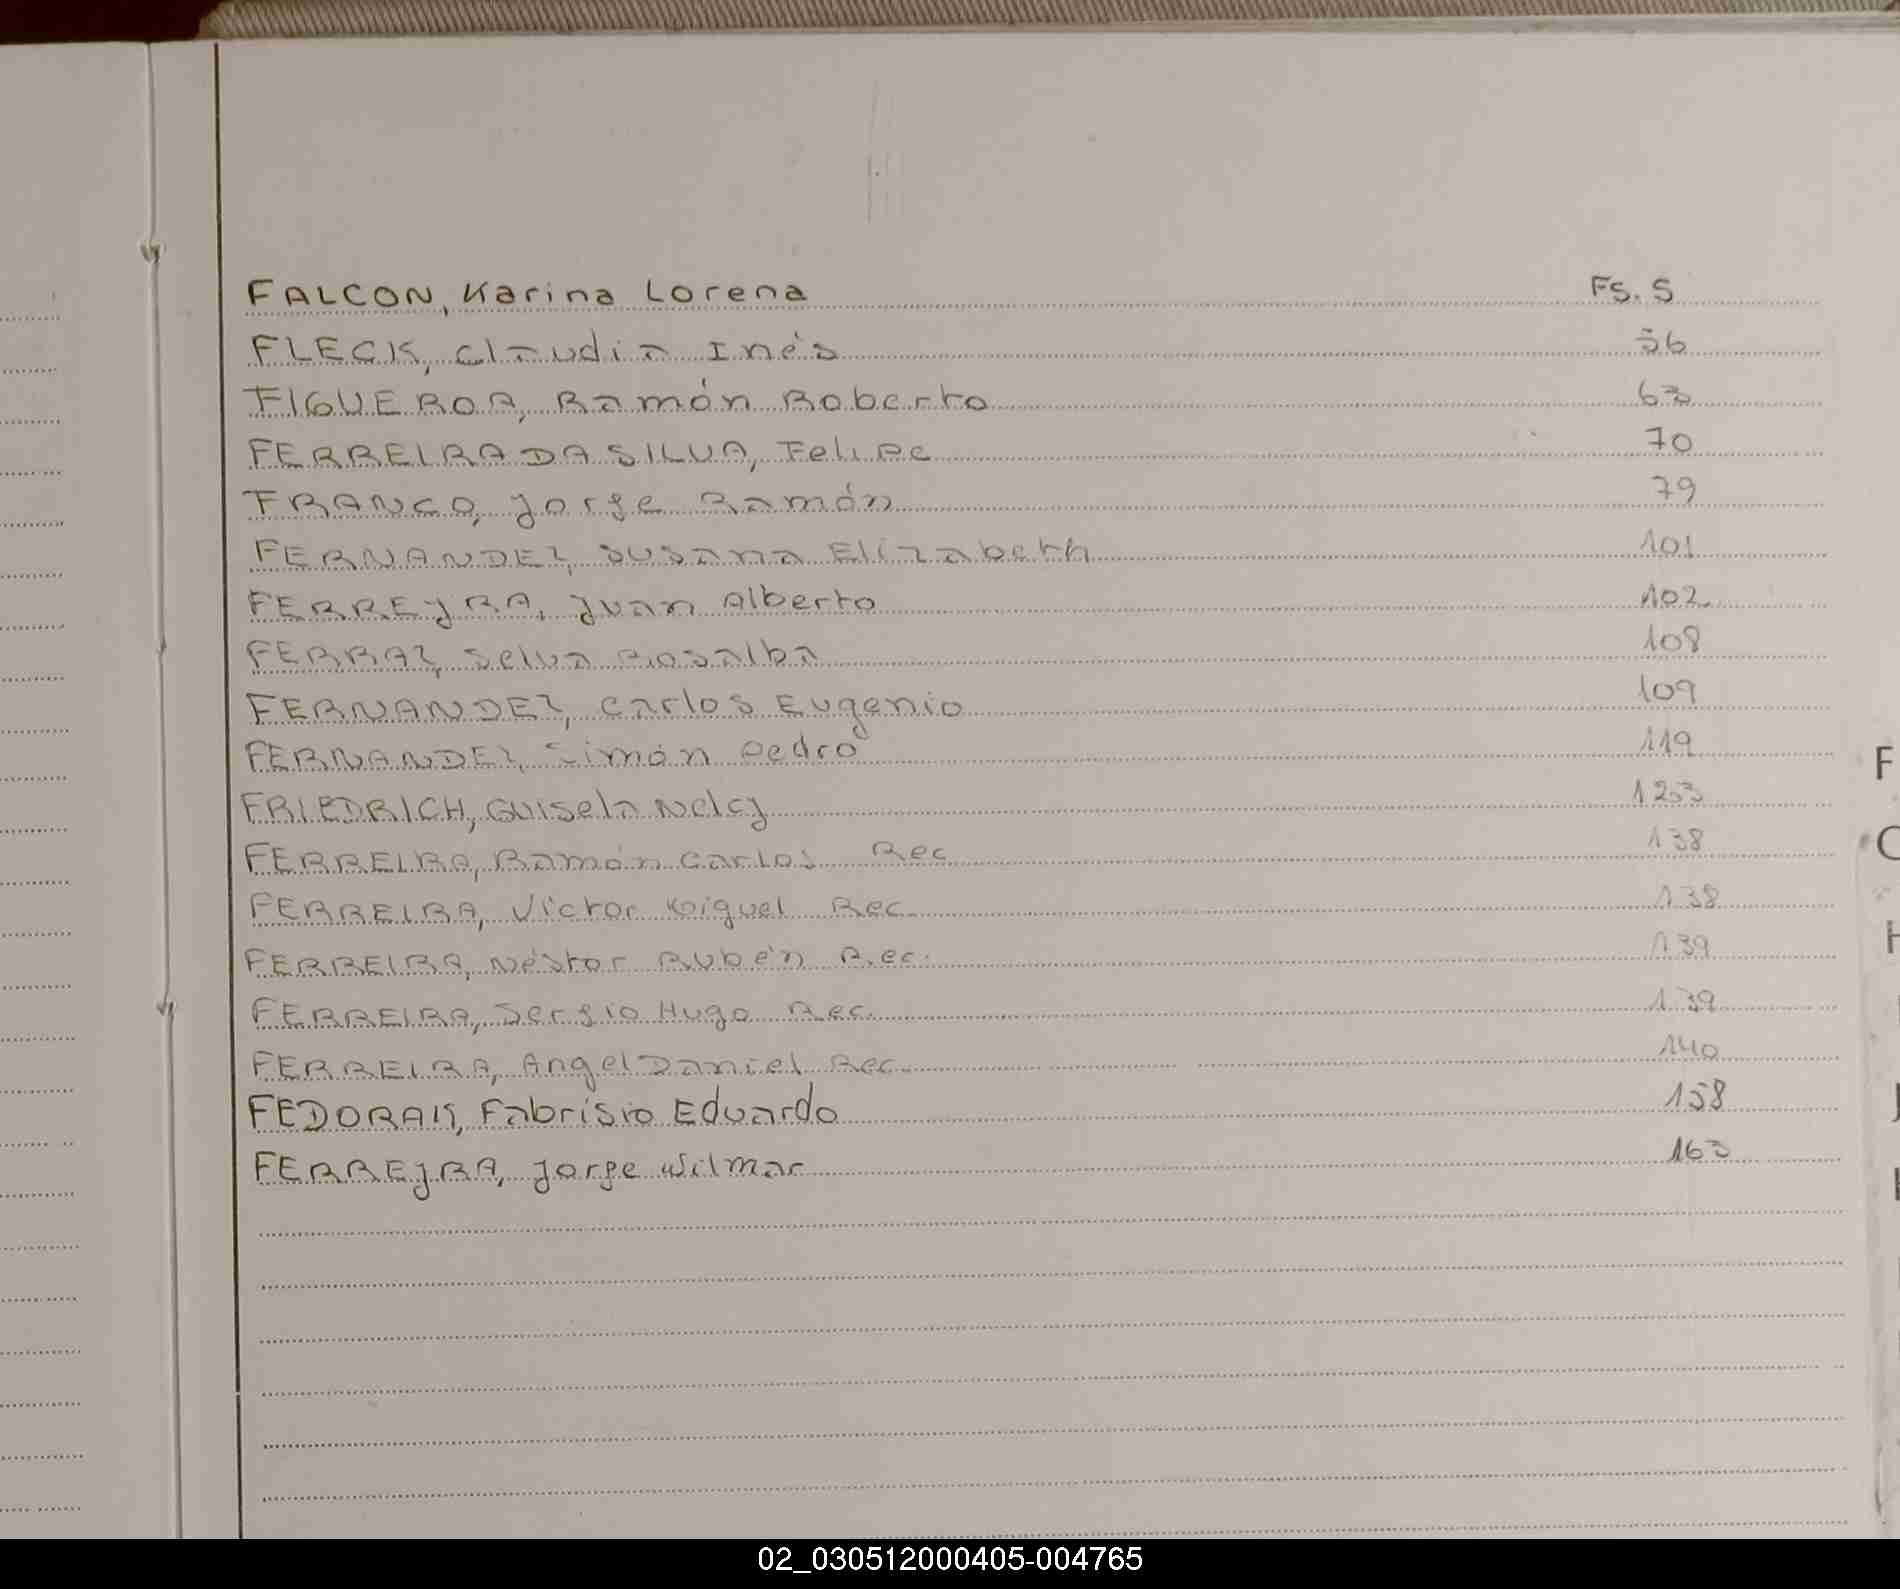 FALCON, Karina Lorena Fs. 5
FLECK, Claudia Inés 56
FIGUEROA, Ramón Roberto 63
FERREIRA DA SILVA, Felipe 70
FRANCO, Jorge Ramón 79
FERNANDEZ, Susana Elizabeth 101
FERREYRA, Juan Alberto 102
FERRAZ, Selva Rosalba 108
FERNANDEZ, Carlos Eugenio 109
FERNANDEZ, Simón Pedro 119
FRIEDRICH, Guisela Nelcy 123
FERREIRA, Ramón Carlos Rec 138
FERREIRA, Victor Miguel Rec. 138
FERREIRA, Néstor Rubén Rec. 139
FERREIRA, Sergio Hugo Rec. 139
FERREIRA, Angel Daniel Rec. 140
FEDORAK, Fabrisio Eduardo 158
FERREYRA, Jorge Wilmar 163
F
H
02_030512000405-004765